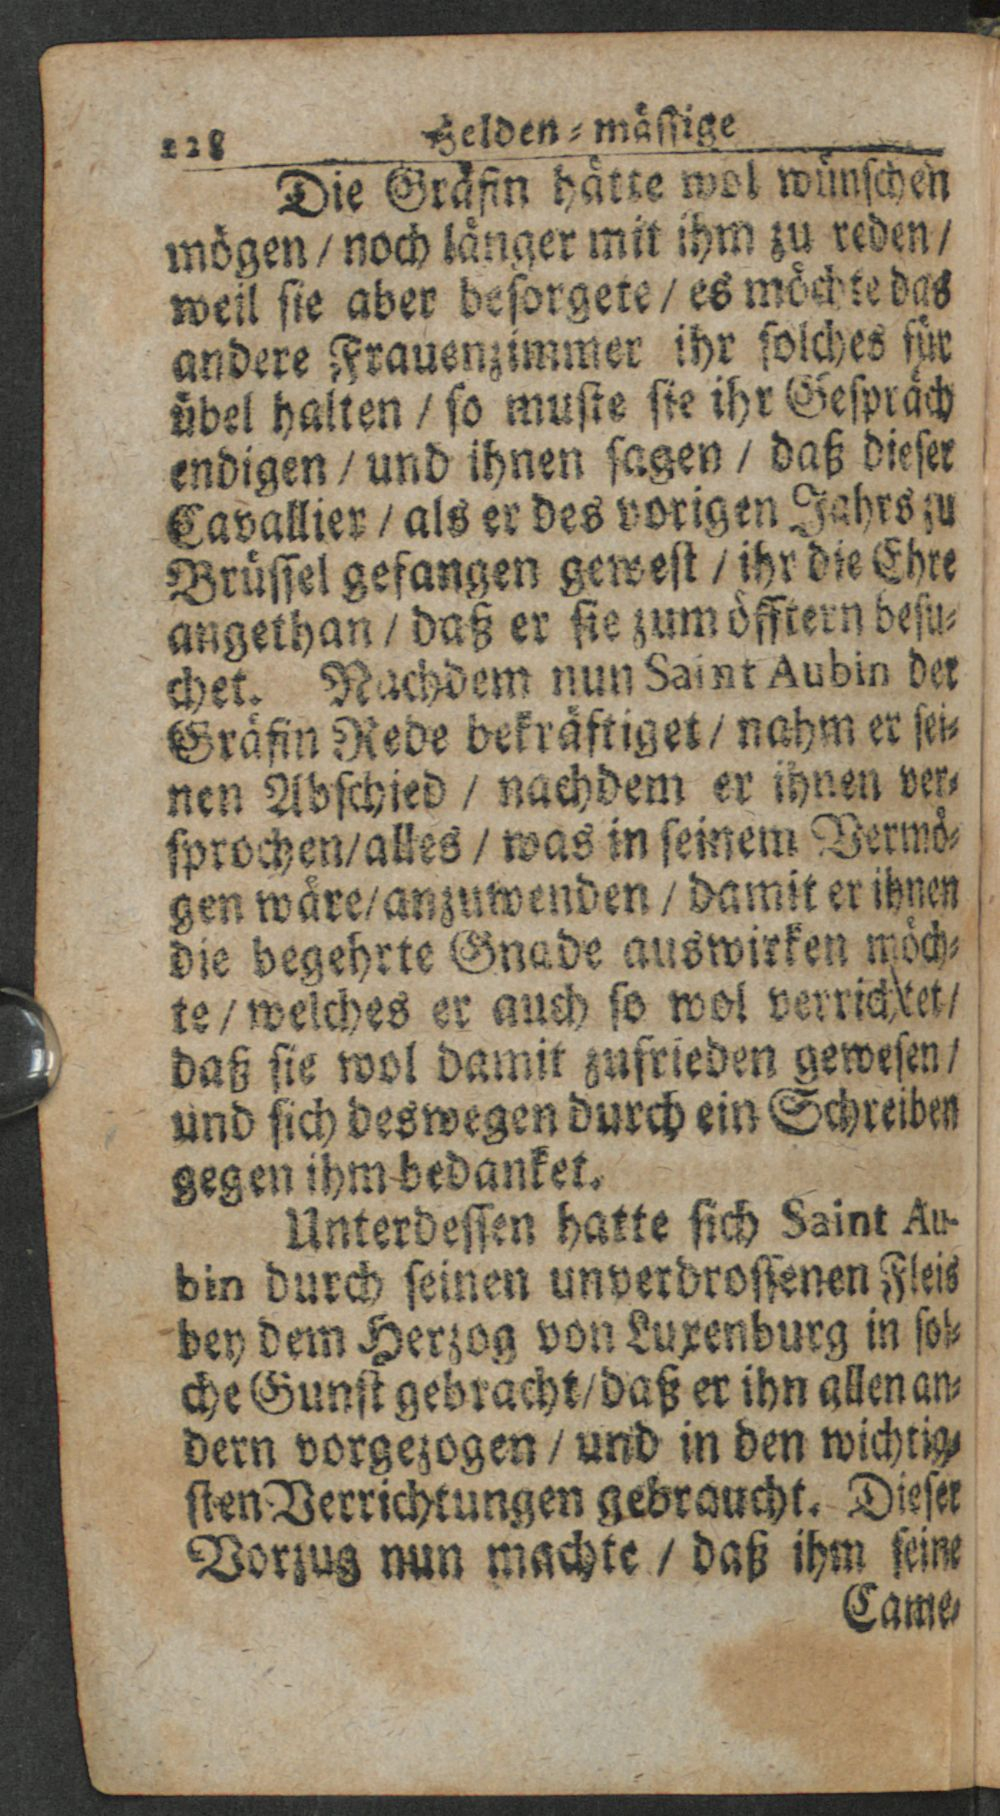 228 Helden-mässige
Die Gräfin hätte wol wünschen
mögen / noch länger mit ihm zu reden /
weil sie aber besorgete / es möchte das
andere Frauenzimmer ihr solches für
übel halten / so muste sie ihr Gespräch
endigen / und ihnen sagen / daß dieser
Cavallier / als er des vorigen Jahrs zu
Brüssel gefangen gewest / ihr die Ehre
angethan / daß er sie zum öfftern besu-
chet. Nachdem nun Saint Aubin der
Gräfin Rede bekräftiget / nahm er sei-
nen Abschied / nachdem er ihnen ver-
sprochen / alles / was in seinem Vermö-
gen wäre / anzuwenden / damit er ihnen
die begehrte Gnade auswirken möch-
te / welches er auch so wol verrichtet /
daß sie wol damit zufrieden gewesen /
und sich deswegen durch ein Schreiben
gegen ihm bedanket.
Unterdessen hatte sich Saint Au-
bin durch seinen unverdrossenen Fleis
bey dem Herzog von Luxenburg in sol-
che Gunst gebracht / daß er ihn allen an-
dern vorgezogen / und in den wichtig-
sten Verrichtungen gebraucht. Dieser
Vorzug nun machte / daß ihm seine
Came-